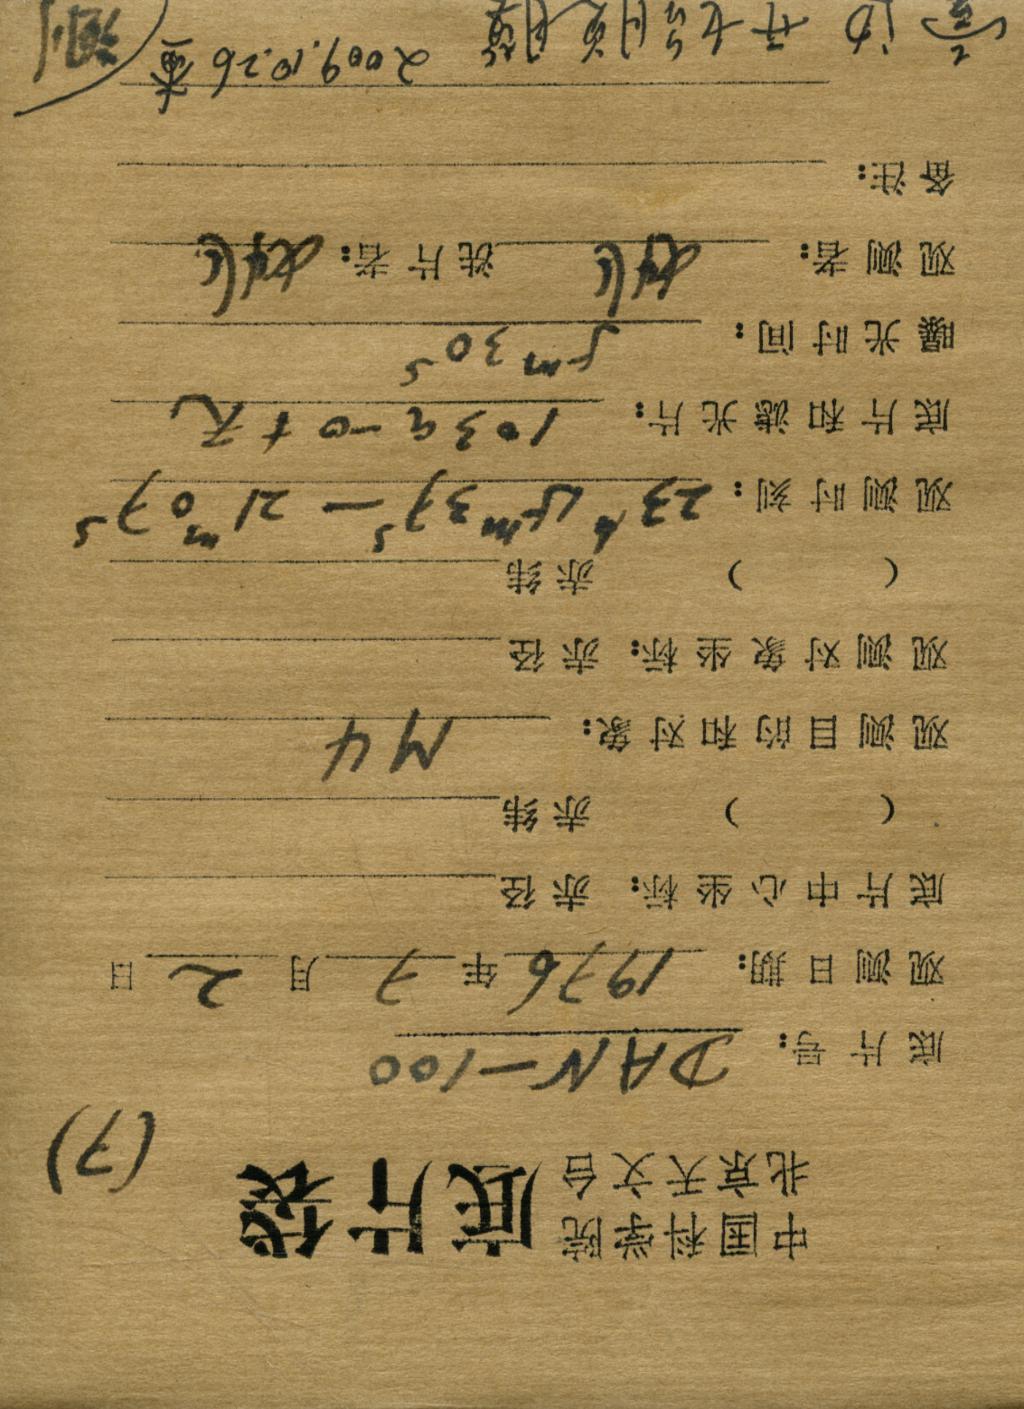 中国科学院
北京天文台 底片袋 (7)
底片号: DAN-100
观测日期: 1976年7月2日
底片中心坐标: 赤径
( ) 赤纬
观测目的和对象: M4
观测对象坐标: 赤径
( ) 赤纬
观测时刻: 23h 15m 37s — 21m 07s
底片和滤光片: 103a-O + 无
曝光时间: 5m 30s
观测者: 洗片者:
备注:
2009.10.26 查